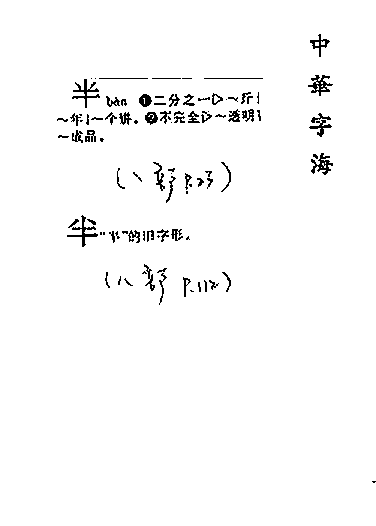 中華字海
半 bàn ❶二分之一▷～斤|
～年|～个讲。❷不完全▷～透明|
～成品。
(丶部 P.23)
"半"的旧字形。
(八部 P.112)